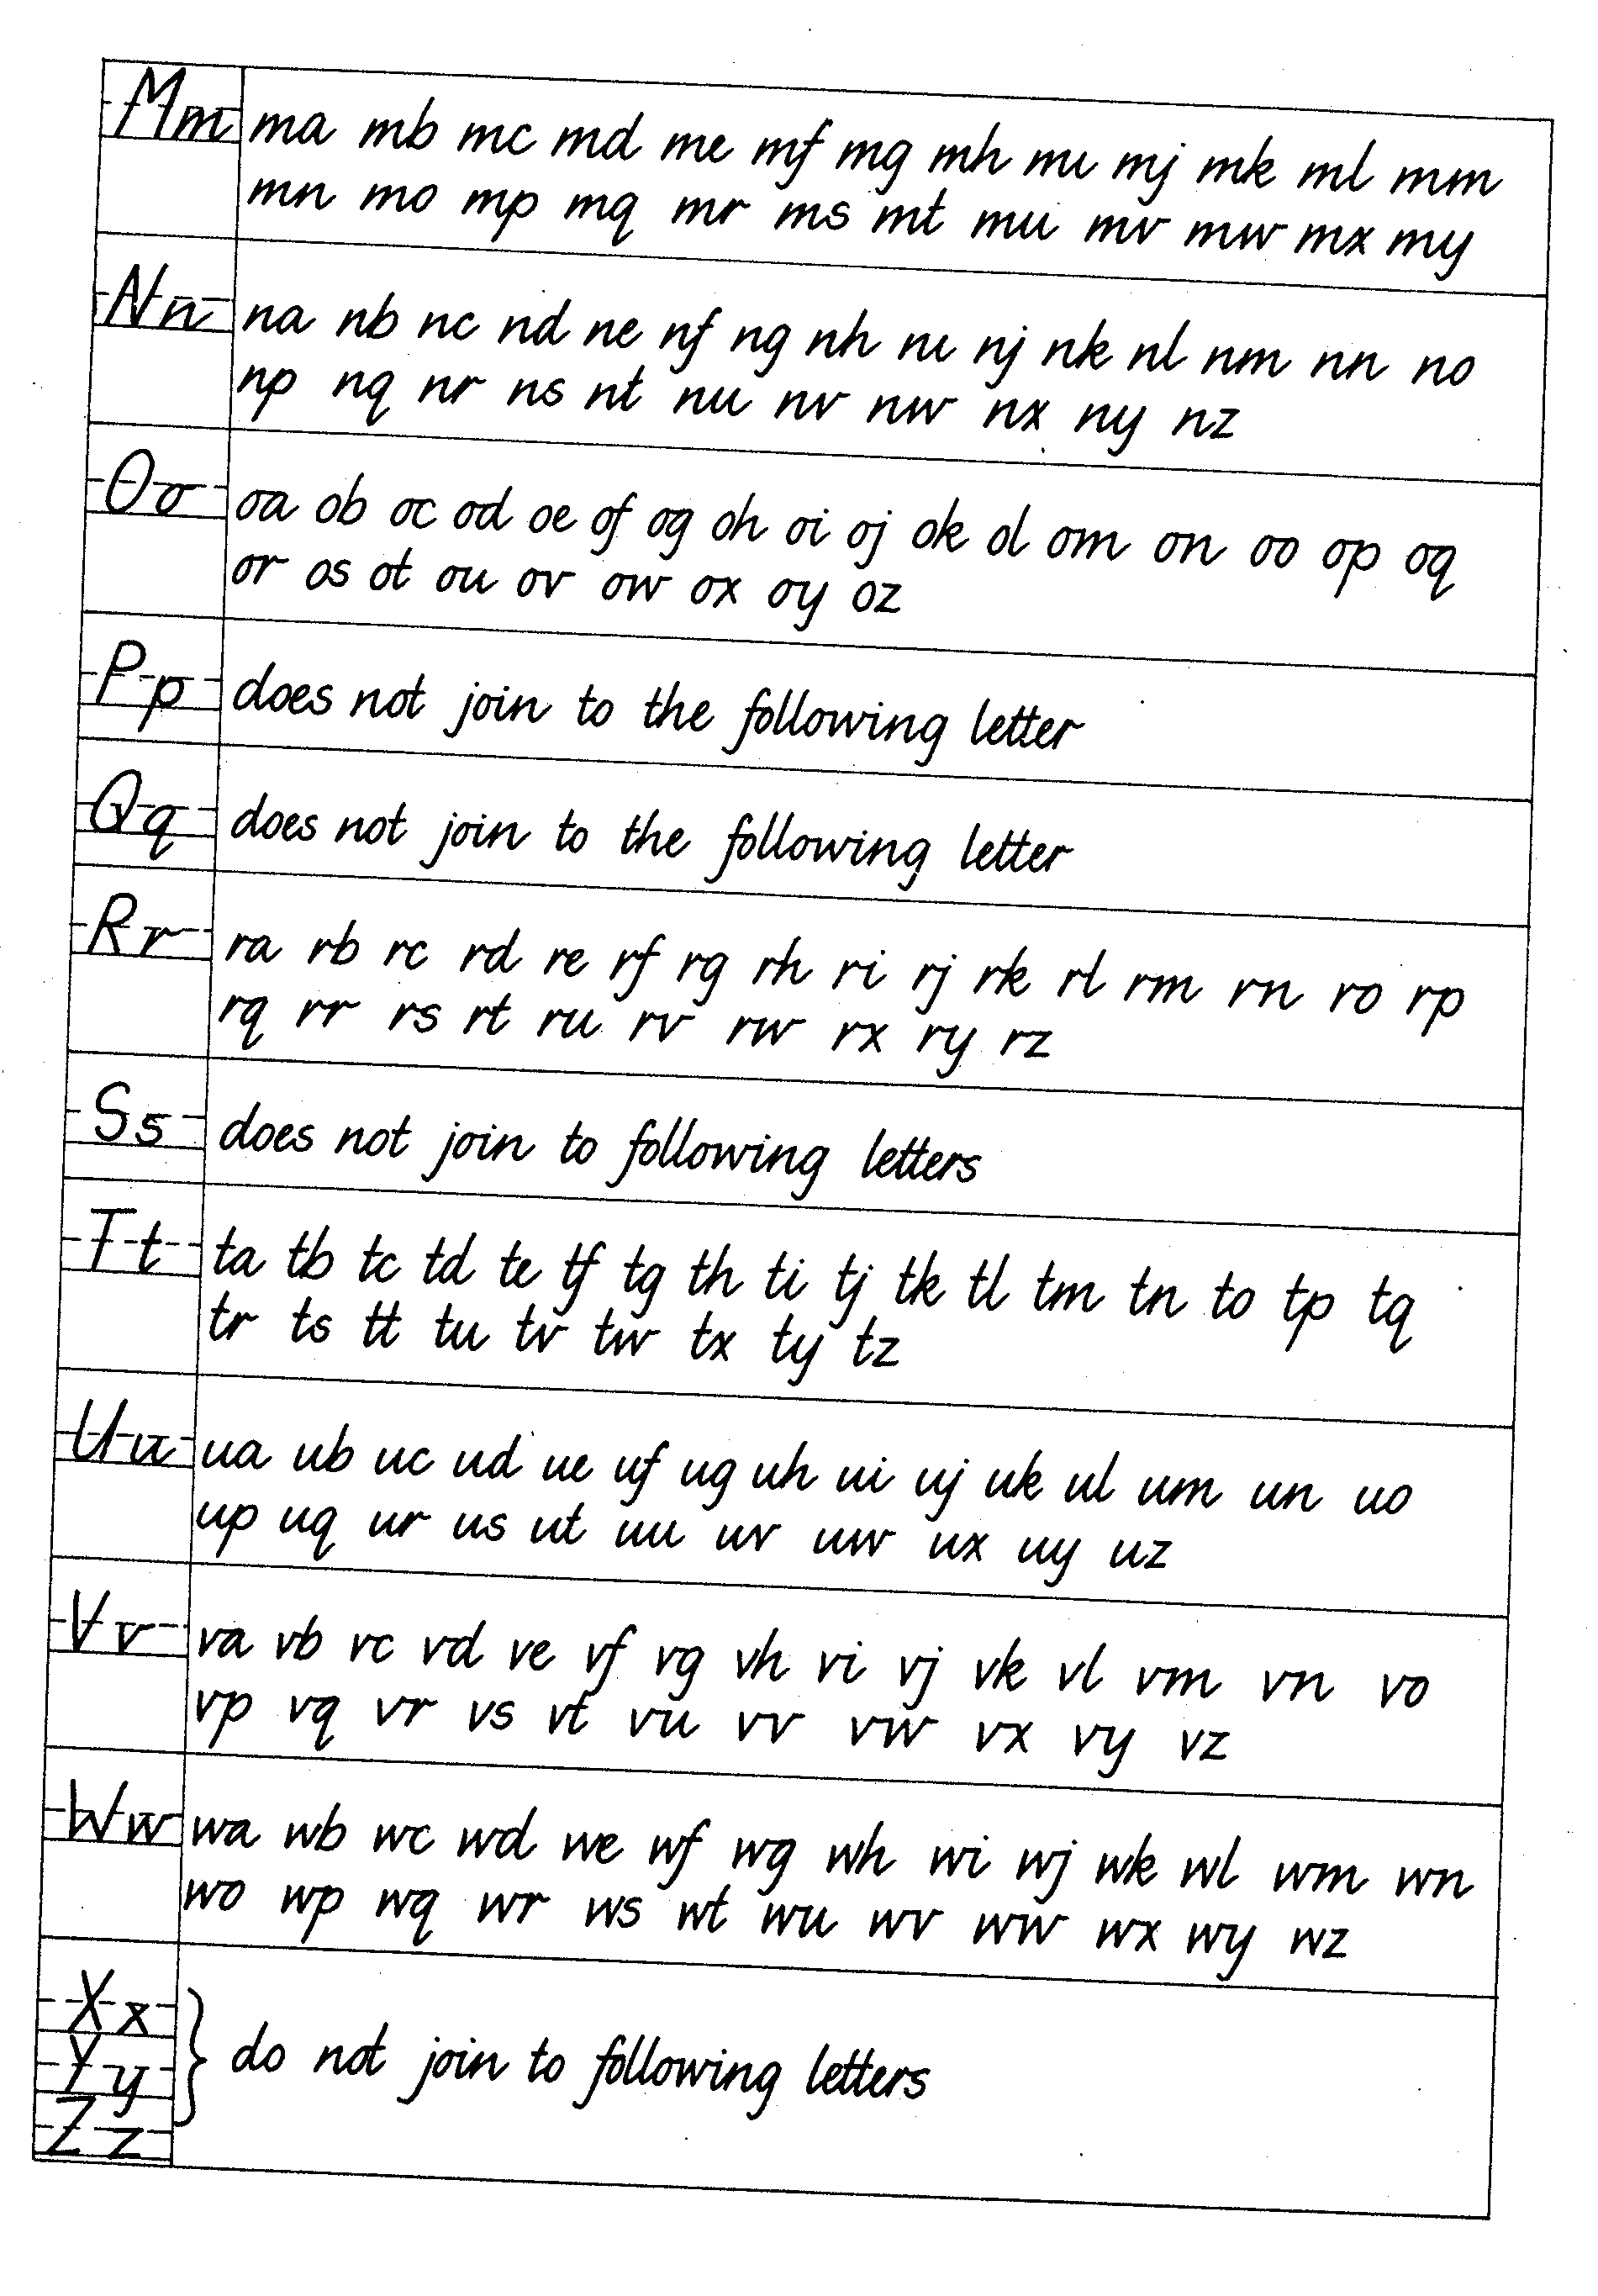 Mm ma mb mc md me mf mg mh mi mj mk ml mm
mn mo mp mq mr ms mt mu mv mw mx my
Nn na nb nc nd ne nf ng nh ni nj nk nl nm nn no
np nq nr ns nt nu nv nw nx ny nz
Oo oa ob oc od oe of og oh oi oj ok ol om on oo op oq
or os ot ou ov ow ox oy oz
Pp does not join to the following letter
Qq does not join to the following letter
Rr ra rb rc rd re rf rg rh ri rj rk rl rm rn ro rp
rq rr rs rt ru rv rw rx ry rz
Ss does not join to following letters
Tt ta tb tc td te tf tg th ti tj tk tl tm tn to tp tq
tr ts tt tu tv tw tx ty tz
Uu ua ub uc ud ue uf ug uh ui uj uk ul um un uo
up uq ur us ut uu uv uw ux uy uz
Vv va vb vc vd ve vf vg vh vi vj vk vl vm vn vo
vp vq vr vs vt vu vv vw vx vy vz
Ww wa wb wc wd we wf wg wh wi wj wk wl wm wn
wo wp wq wr ws wt wu wv ww wx wy wz
Xx
Yy } do not join to following letters
Zz